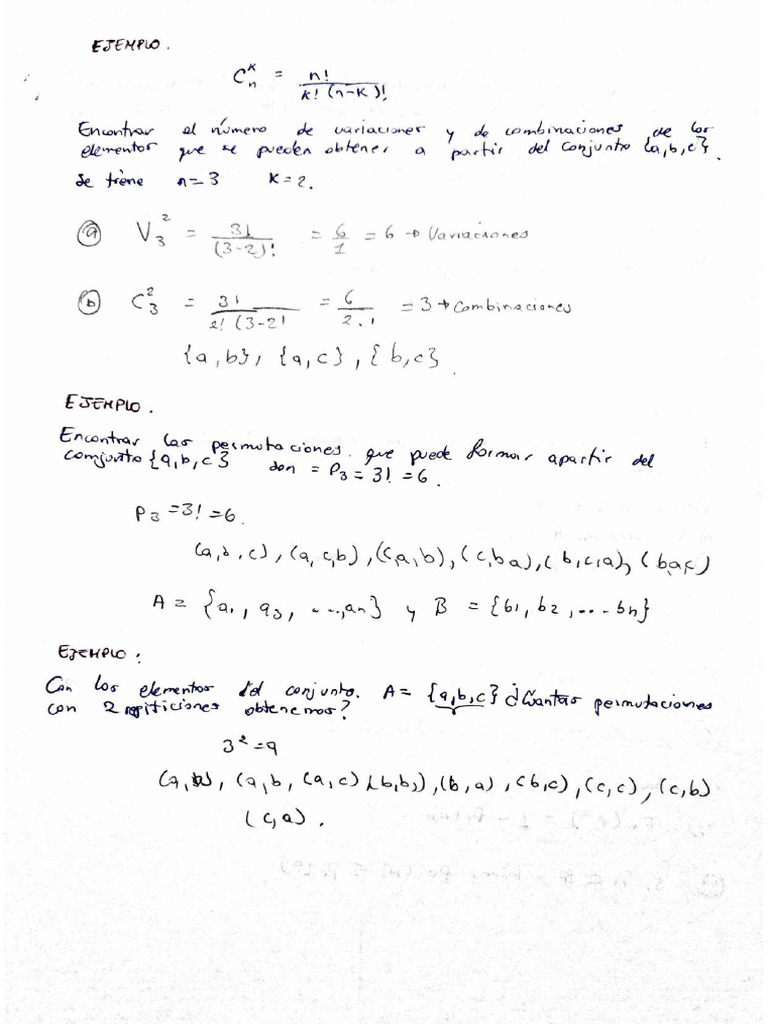 EJEMPLO.
C_n^k = n! / k! (n-k)!
Encontrar el número de variaciones y de combinaciones de los
elementos que se pueden obtener a partir del conjunto {a,b,c}.
Se tiene n=3 k=2.
(a) V_3^2 = 3! / (3-2)! = 6/1 = 6 → Variaciones
(b) C_3^2 = 3! / 2! (3-2! = 6 / 2.1 = 3 → combinaciones
{a,b}, {a,c}, {b,c}.
EJEMPLO.
Encontrar las permutaciones. que puede formar apartir del
comjunto {a,b,c} son = P3 = 3! = 6.
P3 = 3! = 6.
(a,b,c), (a,c,b), (c,a,b), (c,b a), (b,c,a), (b,a,c)
A = {a1, a3, ...., an} y B = {b1, b2, ... bn}
EJEMPLO:
Con los elementos del conjunto. A = {a,b,c} ¿Cuantas permutaciones
con 2 repiticiones obtenemos?
3^2 = 9
(a, (a,b, (a,c) (b,b), (b,a), (b,c), (c,c), (c,b)
(c,a).